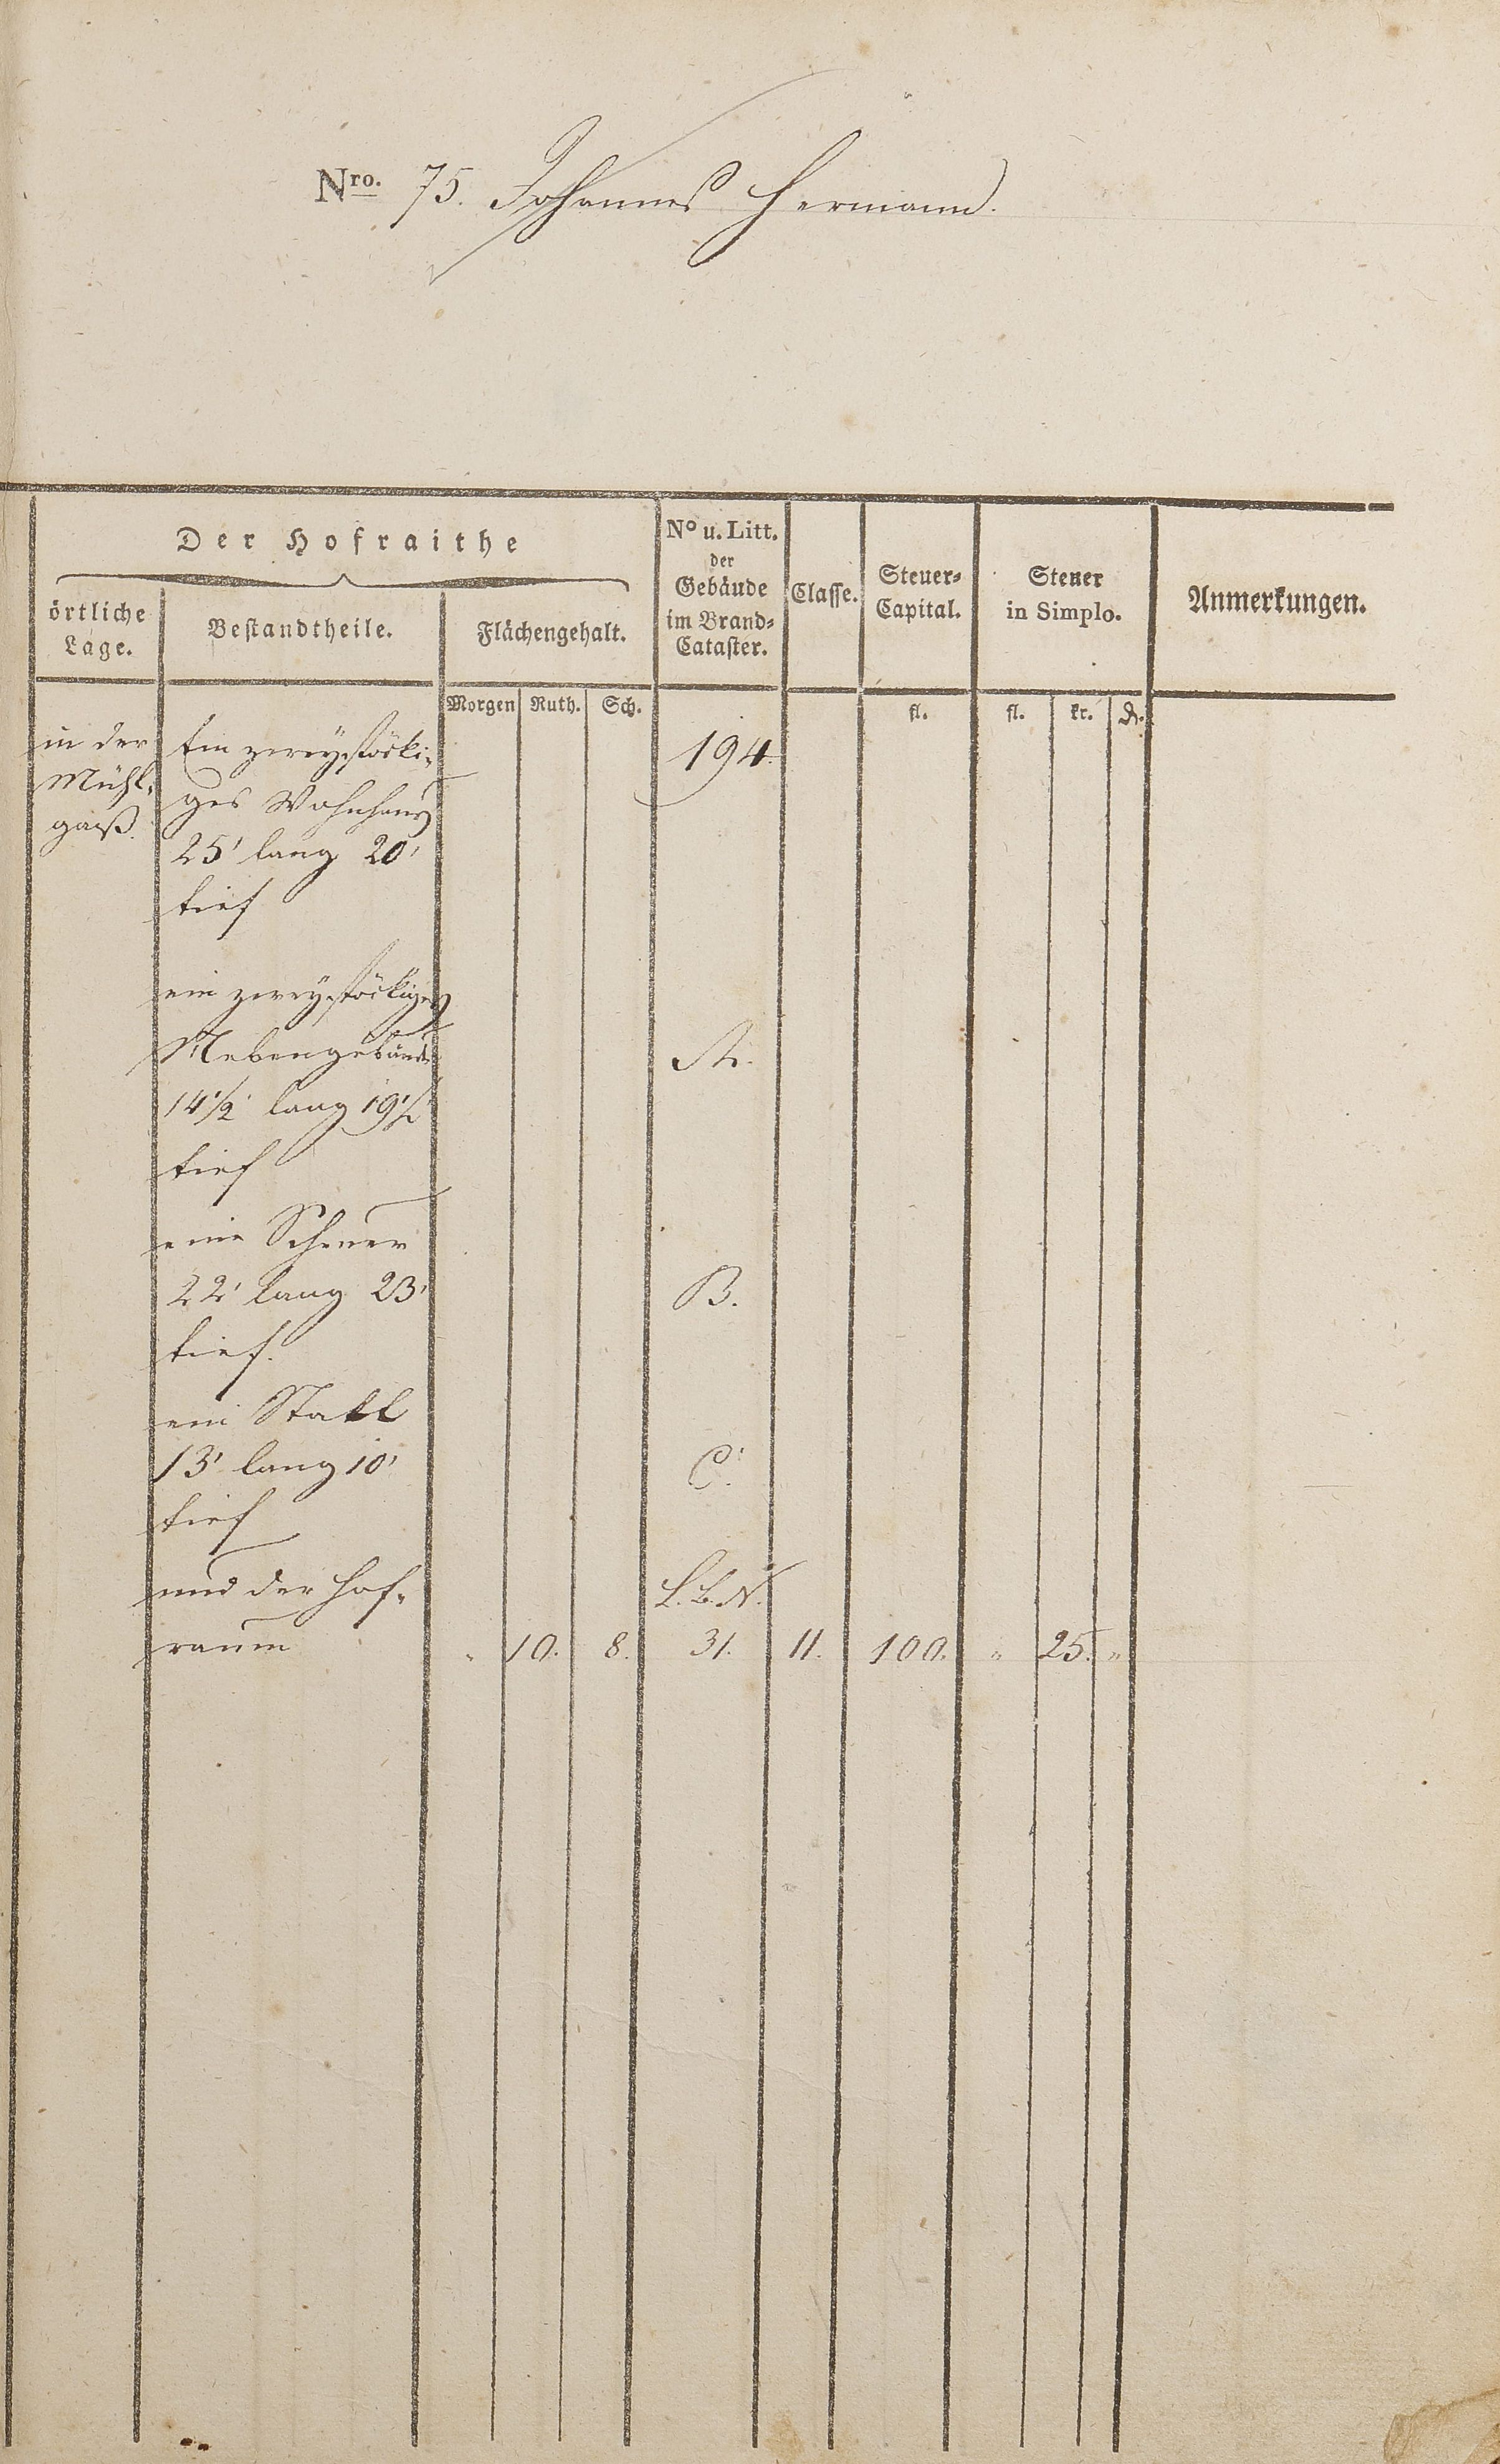 Nro. 75. Johannes Hermann.
Der Hofraithe
örtliche
Lage.
Bestandtheile.
Flächengehalt.
Morgen Ruth. Sch.
No u. Litt.
der
Gebäude
im Brand-
Cataster.
Classe.
Steuer-
Capital.
fl.
Steuer
in Simplo.
fl. kr. ₰.
Anmerkungen.
in der
Mühl-
gaß.
Ein zweystöcki-
ges Wohnhaus 194.
25' lang 20'
tief
ein zweystöckiges
Nebengebäude A.
14 1/2' lang 19 1/2'
tief
eine Scheuer
22' lang 23' B.
tief.
ein Stall
13' lang 10' C.
tief
und der Hof- L.B.N.
raum " 10. 8. 31. 11. 100. " 25. "